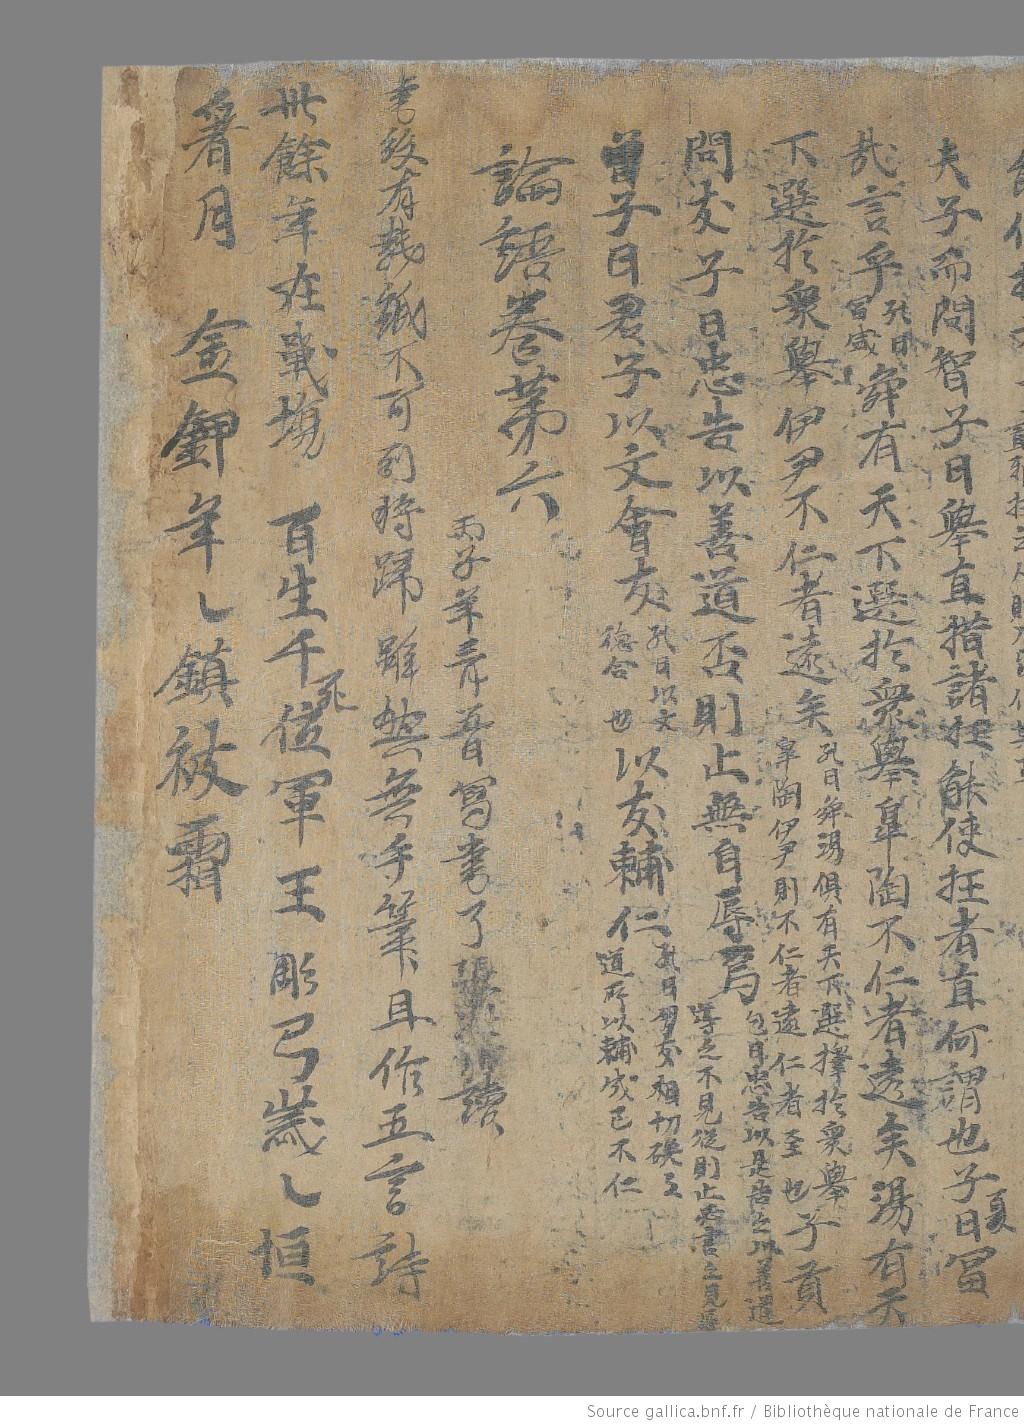 夫子而問智子曰舉直措諸枉能使枉者直何謂也子夏曰富
哉言乎孔曰富盛舜有天下選於衆舉臯陶不仁者遠矣湯有天
下選於衆舉伊尹不仁者遠矣孔曰舜湯俱有天下選擇於衆舉臯陶伊尹則不仁者遠仁者至也子貢
問友子曰忠告以善道否則止無自辱焉包曰忠告以是告之以善道導之不見從則止必言之見辱
曾子曰君子以文會友孔曰以文德合也以友輔仁孔曰朋友相切磋之道所以輔成己不仁
論語卷第六
丙子年 寫書了 讀
書後有殘紙不可列將歸雖然無手筆且作五言詩
卅餘年在戰場 百生千死位軍王彫弓歲〻恒
著月 金鉀年〻鎮被霜